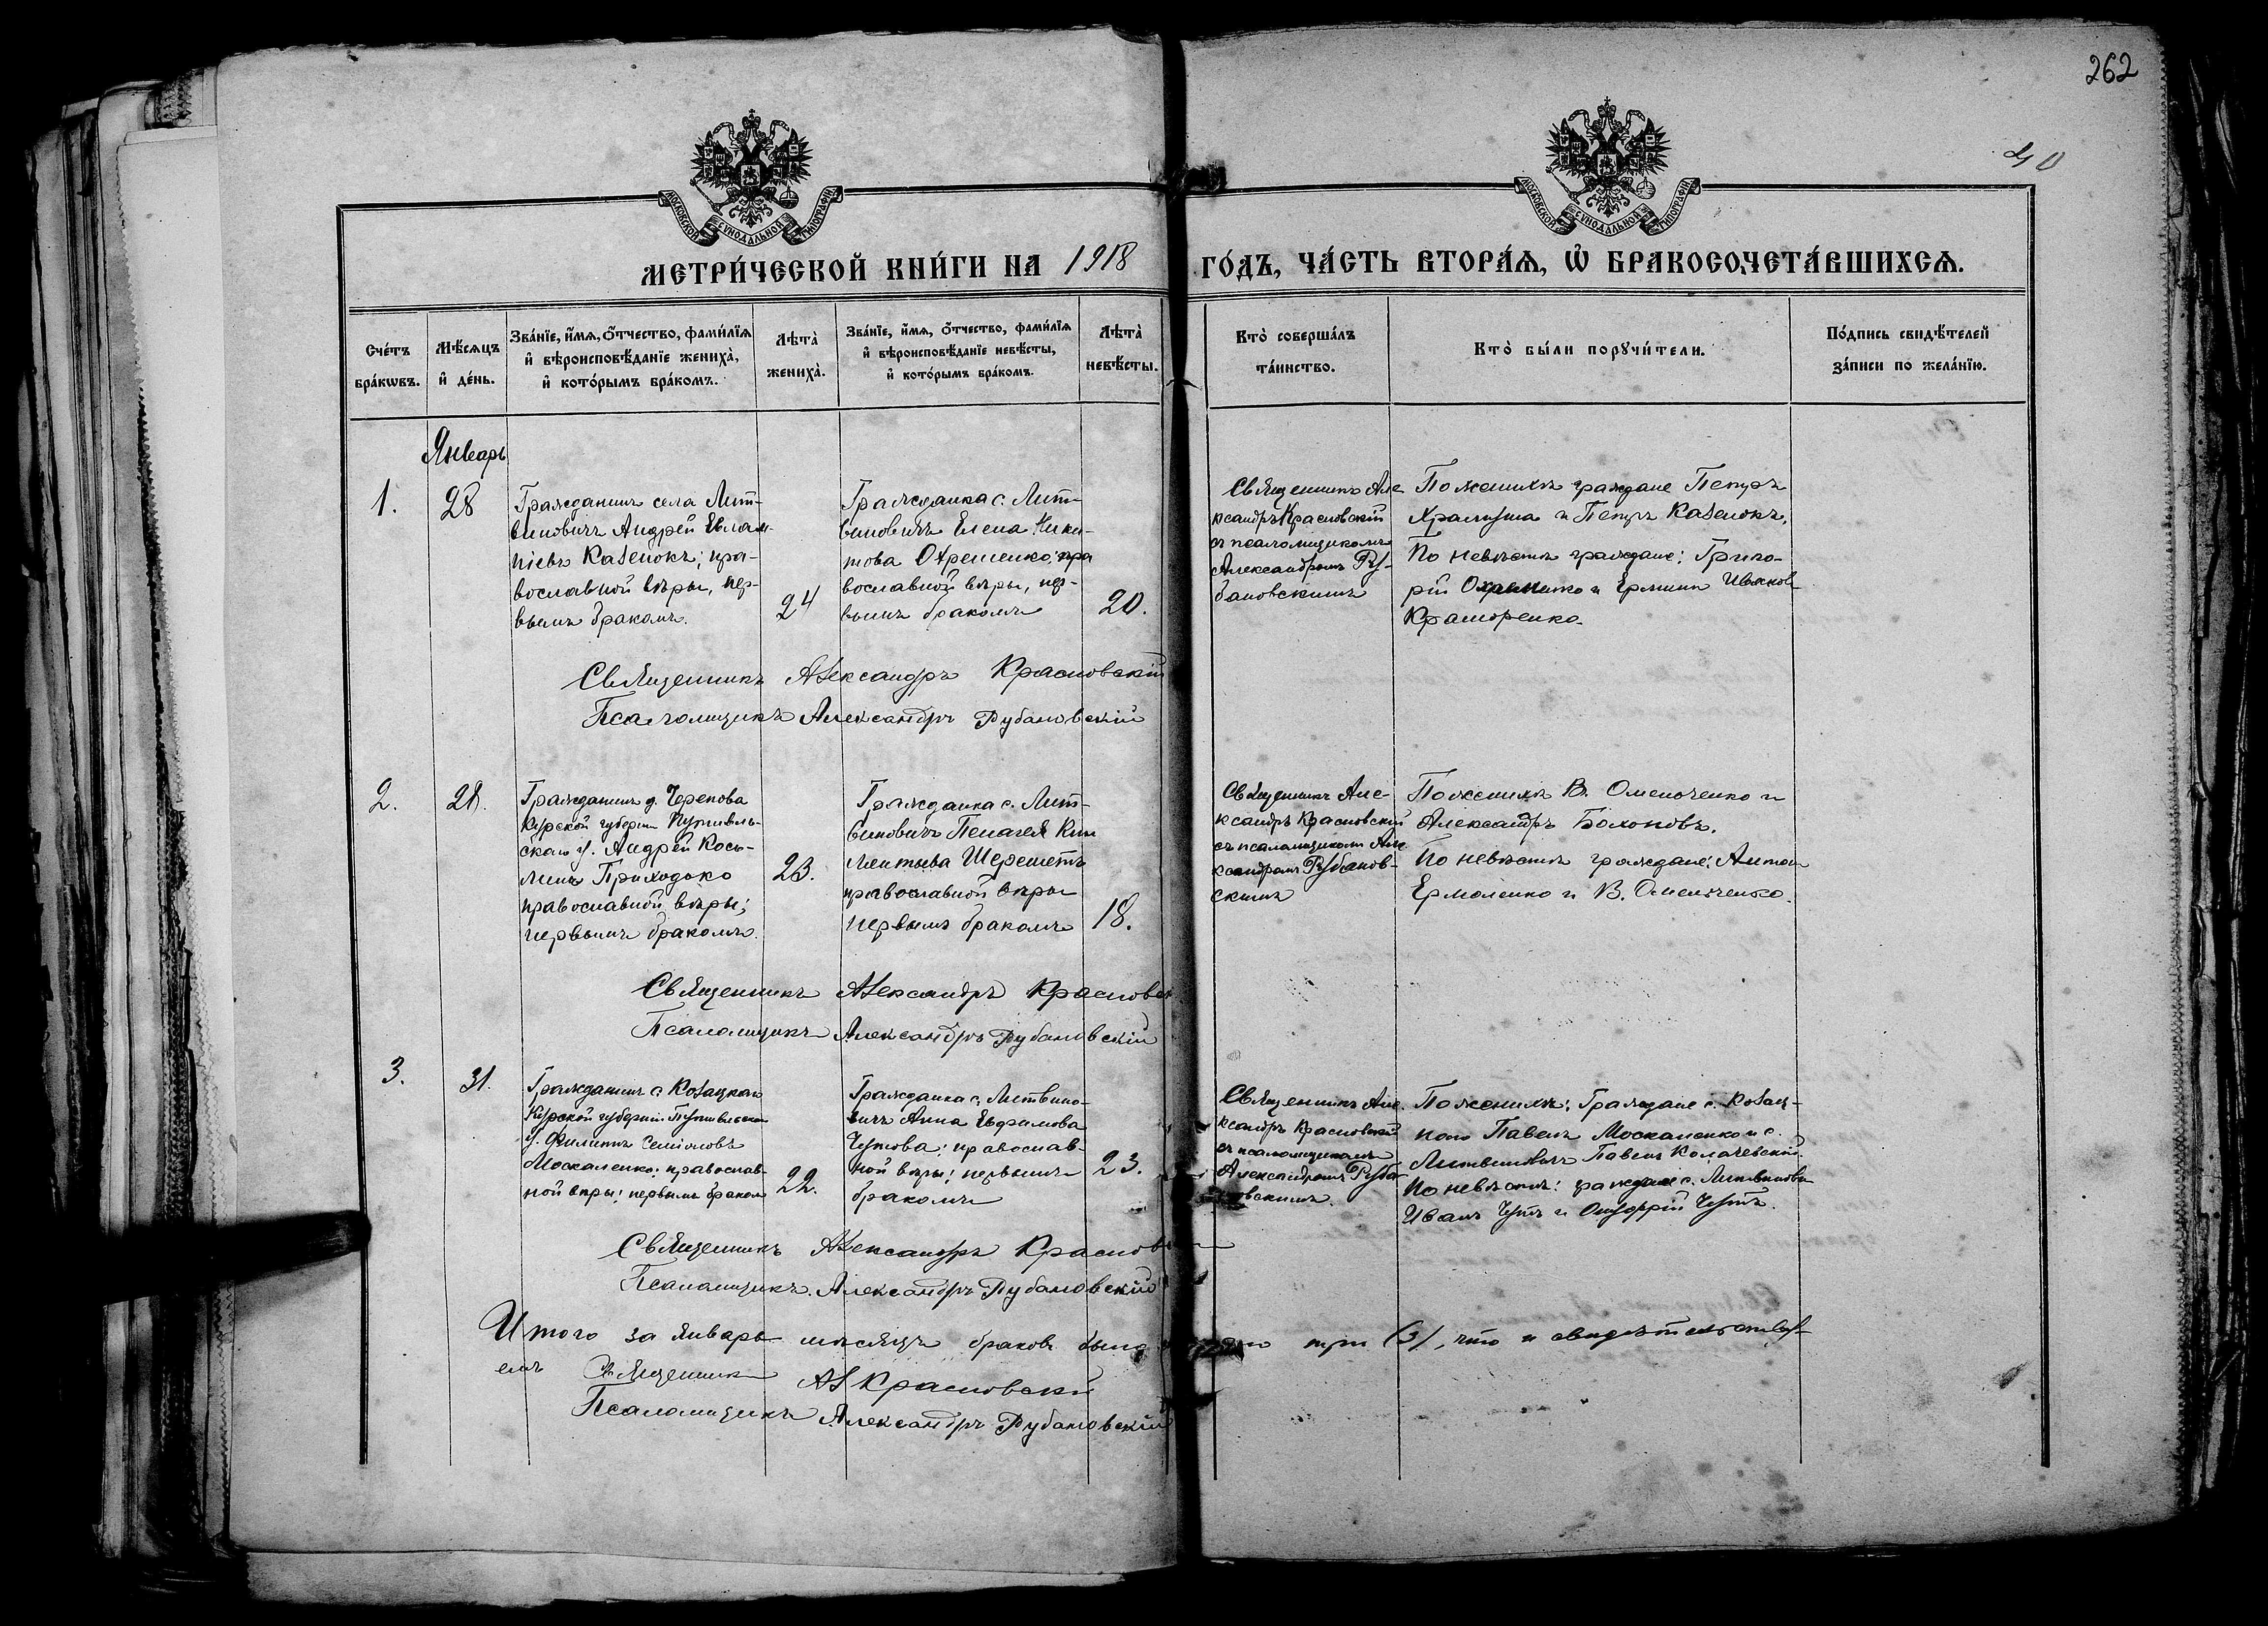 262
40
МОСКОВСКОЙ СѴНОДАЛЬНОЙ ТИПОГРАФІИ
МОСКОВСКОЙ СѴНОДАЛЬНОЙ ТИПОГРАФІИ
МЕТРИ́ЧЕСКОЙ КНИ́ГИ НА 1918 ГО́ДЪ, ЧА́СТЬ ВТОРА́Ѧ, Ѡ҆ БРАКОСОЧЕТА́ВШИХСѦ.
Сче́тъ
бра́кѡвъ.
Мѣ́сѧцъ
и҆ де́нь.
Зва́нїе, и҆́мѧ, ѻ҆́тчество, фами́лїѧ
и҆ вѣроисповѣ́данїе жениха̀,
и҆ кото́рымъ бра́комъ.
Лѣта̀
жениха̀.
Зва́нїе, и҆́мѧ, ѻ҆́тчество, фами́лїѧ
и҆ вѣроисповѣ́данїе невѣ́сты,
и҆ кото́рымъ бра́комъ.
Лѣта̀
невѣ́сты.
Кто̀ соверша́лъ
та́инство.
Кто̀ бы́ли порꙋчи́тели.
По́дпись свидѣ́телей
за́писи по жела́нїю.
Январь
1.
28
Гражданинъ села Лит-
виновичъ Андрей Евлам-
піевъ Казенокъ; пра-
вославной вѣры, пер-
вымъ бракомъ.
24
Гражданка с. Лит-
виновичъ Елена Ники-
това Охременко; пра
вославной вѣры, пер-
вымъ бракомъ
20.
Священникъ Але
ксандръ Красновскій
съ псаломщикомъ
Александромъ Ру-
бановскимъ
По женихѣ граждане Петръ
Храмуша и Петръ Казенокъ,
По невѣстѣ граждане: Григо-
рій Охрименко и Ермилъ Иванов
Краморенко.
Священникъ Александръ Красновскій
Псаломщикъ Александръ Рубановскій
2.
28.
Гражданинъ д. Черепова
Курской губерніи Путивль-
скаго у. Андрей Кось-
минъ Приходько
православной вѣры;
первымъ бракомъ.
23.
Гражданка с. Лит-
виновичъ Пелагея Кли
ментьева Шереметъ
православной вѣры
первымъ бракомъ
18.
Священникъ Але-
ксандръ Красновскій
съ псаломщикомъ Але
ксандромъ Рубанов-
скимъ
По женихѣ В. Омельченко и
Александръ Болоховъ.
По невѣстѣ граждане: Антон
Ермоленко и В. Омельченко.
Священникъ Александръ Красновск
Псаломщикъ Александръ Рубановскій
3.
31.
Гражданинъ с. Козацкаго
Курской губерніи Путивльскаго
у. Филиппъ Семіоновъ
Москаленко; православ-
ной вѣры; первымъ браком
22.
Гражданка с. Литвино-
вичъ Анна Евфимова
Чутова; православ-
ной вѣры; первымъ
бракомъ
23.
Священникъ Але-
ксандръ Красновскій
съ псаломщикомъ
Александромъ Руба-
новскимъ.
По женихѣ: Граждане с. Козац-
каго Павелъ Москаленко и с.
Литвиновичъ Павелъ Колачевскій.
По невѣстѣ: граждане с. Литвинович
Иванъ Чутъ и Онуфрій Чутъ.
Священникъ Александръ Краснов
Псаломщикъ Александръ Рубановскій
Итого за январь мѣсяцъ браковъ было три (3), что и свидѣтельству-
емъ Священникъ Ал Красновскій
Псаломщикъ Александръ Рубановскій